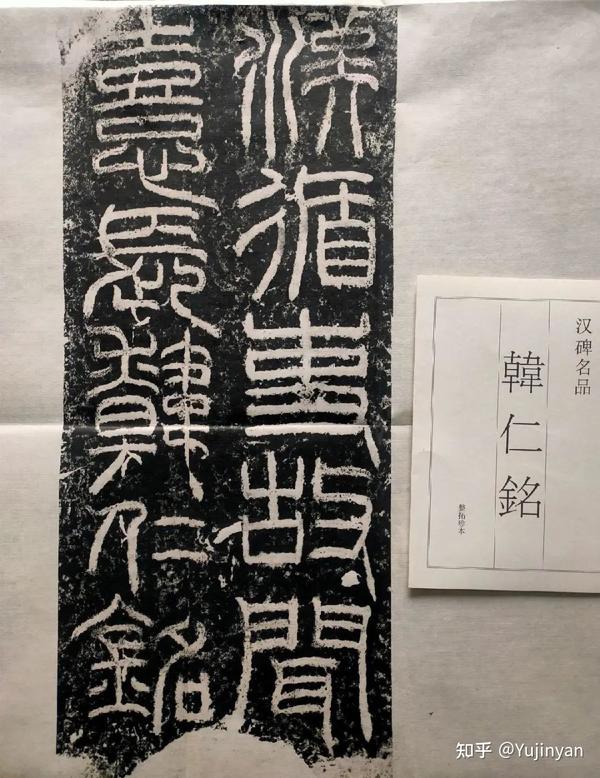 漢循吏故聞
憙長韓仁銘
汉碑名品
韓仁銘
整拓珍本
知乎 @Yujinyan